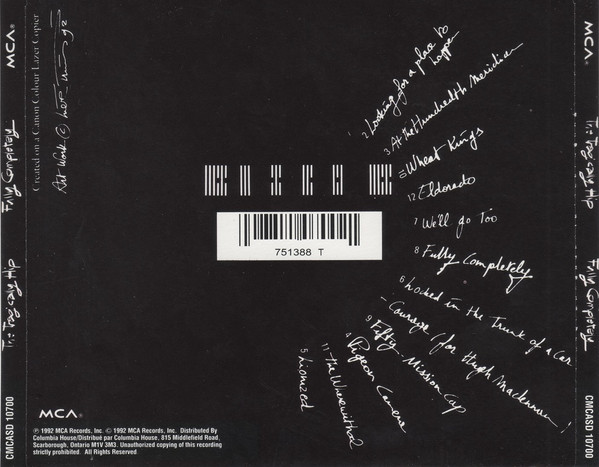 MCA
Fully Completely
The Tragically Hip
CMCASD 10700
Created on a Canon Colour Lazer Copier
Art Work (C)
2 Looking for a place to
happen
3 At the Hundredth Meridian
10 Wheat Kings
12 Eldorado
7 We'll go Too
8 Fully Completely
6 Locked in the Trunk of a Car
- Courage (for Hugh Maclennan)
9 Fifty-Mission Cap
4 Pigeon Camera
11 The Wherewithal
5 Lionized
751388 T
MCA
℗ 1992 MCA Records, Inc. © 1992 MCA Records, Inc. Distributed By
Columbia House/Distribué par Columbia House, 815 Middlefield Road,
Scarborough, Ontario M1V 3M3. Unauthorized copying of this recording
strictly prohibited. All Rights Reserved
MCA
The Tragically Hip
Fully Completely
CMCASD 10700